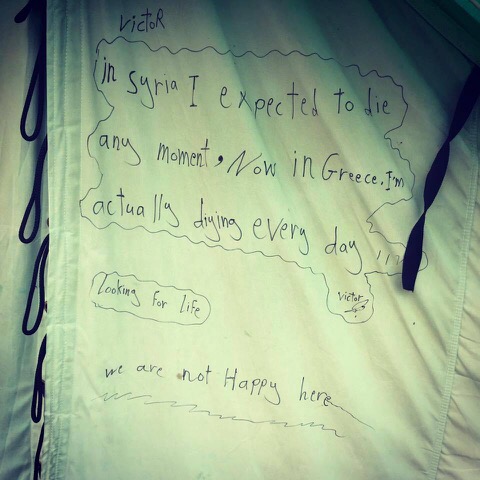 VictoR
in Syria I expected to die
any moment, Now in Greece. I'm
actually diying every day !!!!
Victor
Looking for life
we are not Happy here